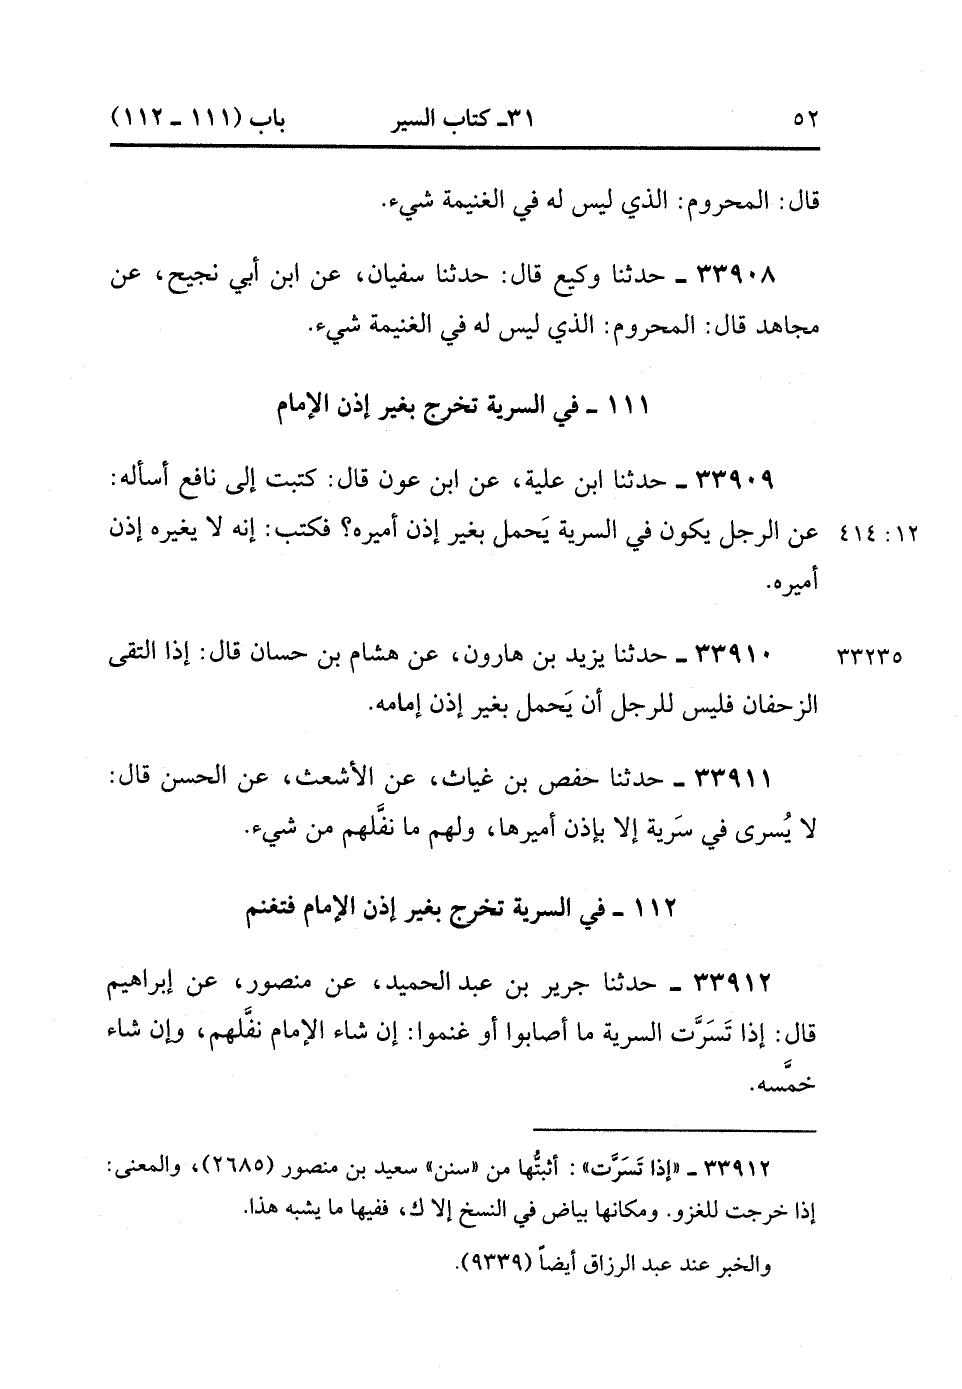 ٥٢ ٣١ـ كتاب السير باب (١١١ ـ ١١٢)
قال: المحروم: الذي ليس له في الغنيمة شيء.
٣٣٩٠٨ ـ حدثنا وكيع قال: حدثنا سفيان، عن ابن أبي نجيح، عن
مجاهد قال: المحروم: الذي ليس له في الغنيمة شيء.
١١١ ـ في السرية تخرج بغير إذن الإمام
٣٣٩٠٩ ـ حدثنا ابن علية، عن ابن عون قال: كتبت إلى نافع أسأله:
١٢: ٤١٤ عن الرجل يكون في السرية يَحمل بغير إذن أميره؟ فكتب: إنه لا يغيره إذن
أميره.
٣٣٢٣٥ ٣٣٩١٠ ـ حدثنا يزيد بن هارون، عن هشام بن حسان قال: إذا التقى
الزحفان فليس للرجل أن يَحمل بغير إذن إمامه.
٣٣٩١١ ـ حدثنا حفص بن غياث، عن الأشعث، عن الحسن قال:
لا يُسرى في سَرية إلا بإذن أميرها، ولهم ما نفَّلهم من شيء.
١١٢ ـ في السرية تخرج بغير إذن الإمام فتغنم
٣٣٩١٢ ـ حدثنا جرير بن عبد الحميد، عن منصور، عن إبراهيم
قال: إذا تَسَرَّت السرية ما أصابوا أو غنموا: إن شاء الإمام نفَّلهم، وإن شاء
خمَّسه.
٣٣٩١٢ ـ «إذا تَسَرَّت»: أثبتُّها من «سنن» سعيد بن منصور (٢٦٨٥)، والمعنى:
إذا خرجت للغزو. ومكانها بياض في النسخ إلا ك، ففيها ما يشبه هذا.
والخبر عند عبد الرزاق أيضاً (٩٣٣٩).